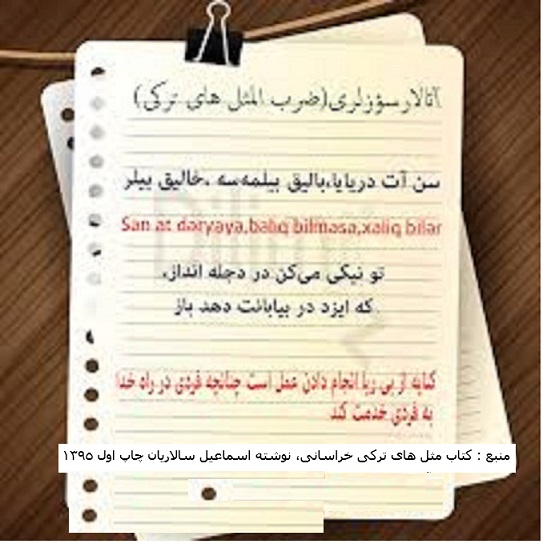 آتالار سؤزلری(ضرب المثل های ترکی)
سن آت دریایا،بالیق بیلمه‌سه ،خالیق بیلر
San at dəryaya,balıq bilməsə,xaliq bilər
تو نیکی می‌کن در دجله انداز،
که ایزد در بیابانت دهد باز.
کنایه از بی ریا انجام دادن عمل است چنانچه فردی در راه خدا
به فردی خدمت کند
منبع : کتاب مثل های ترکی خراسانی، نوشته اسماعیل سالاریان چاپ اول ۱۳۹۵